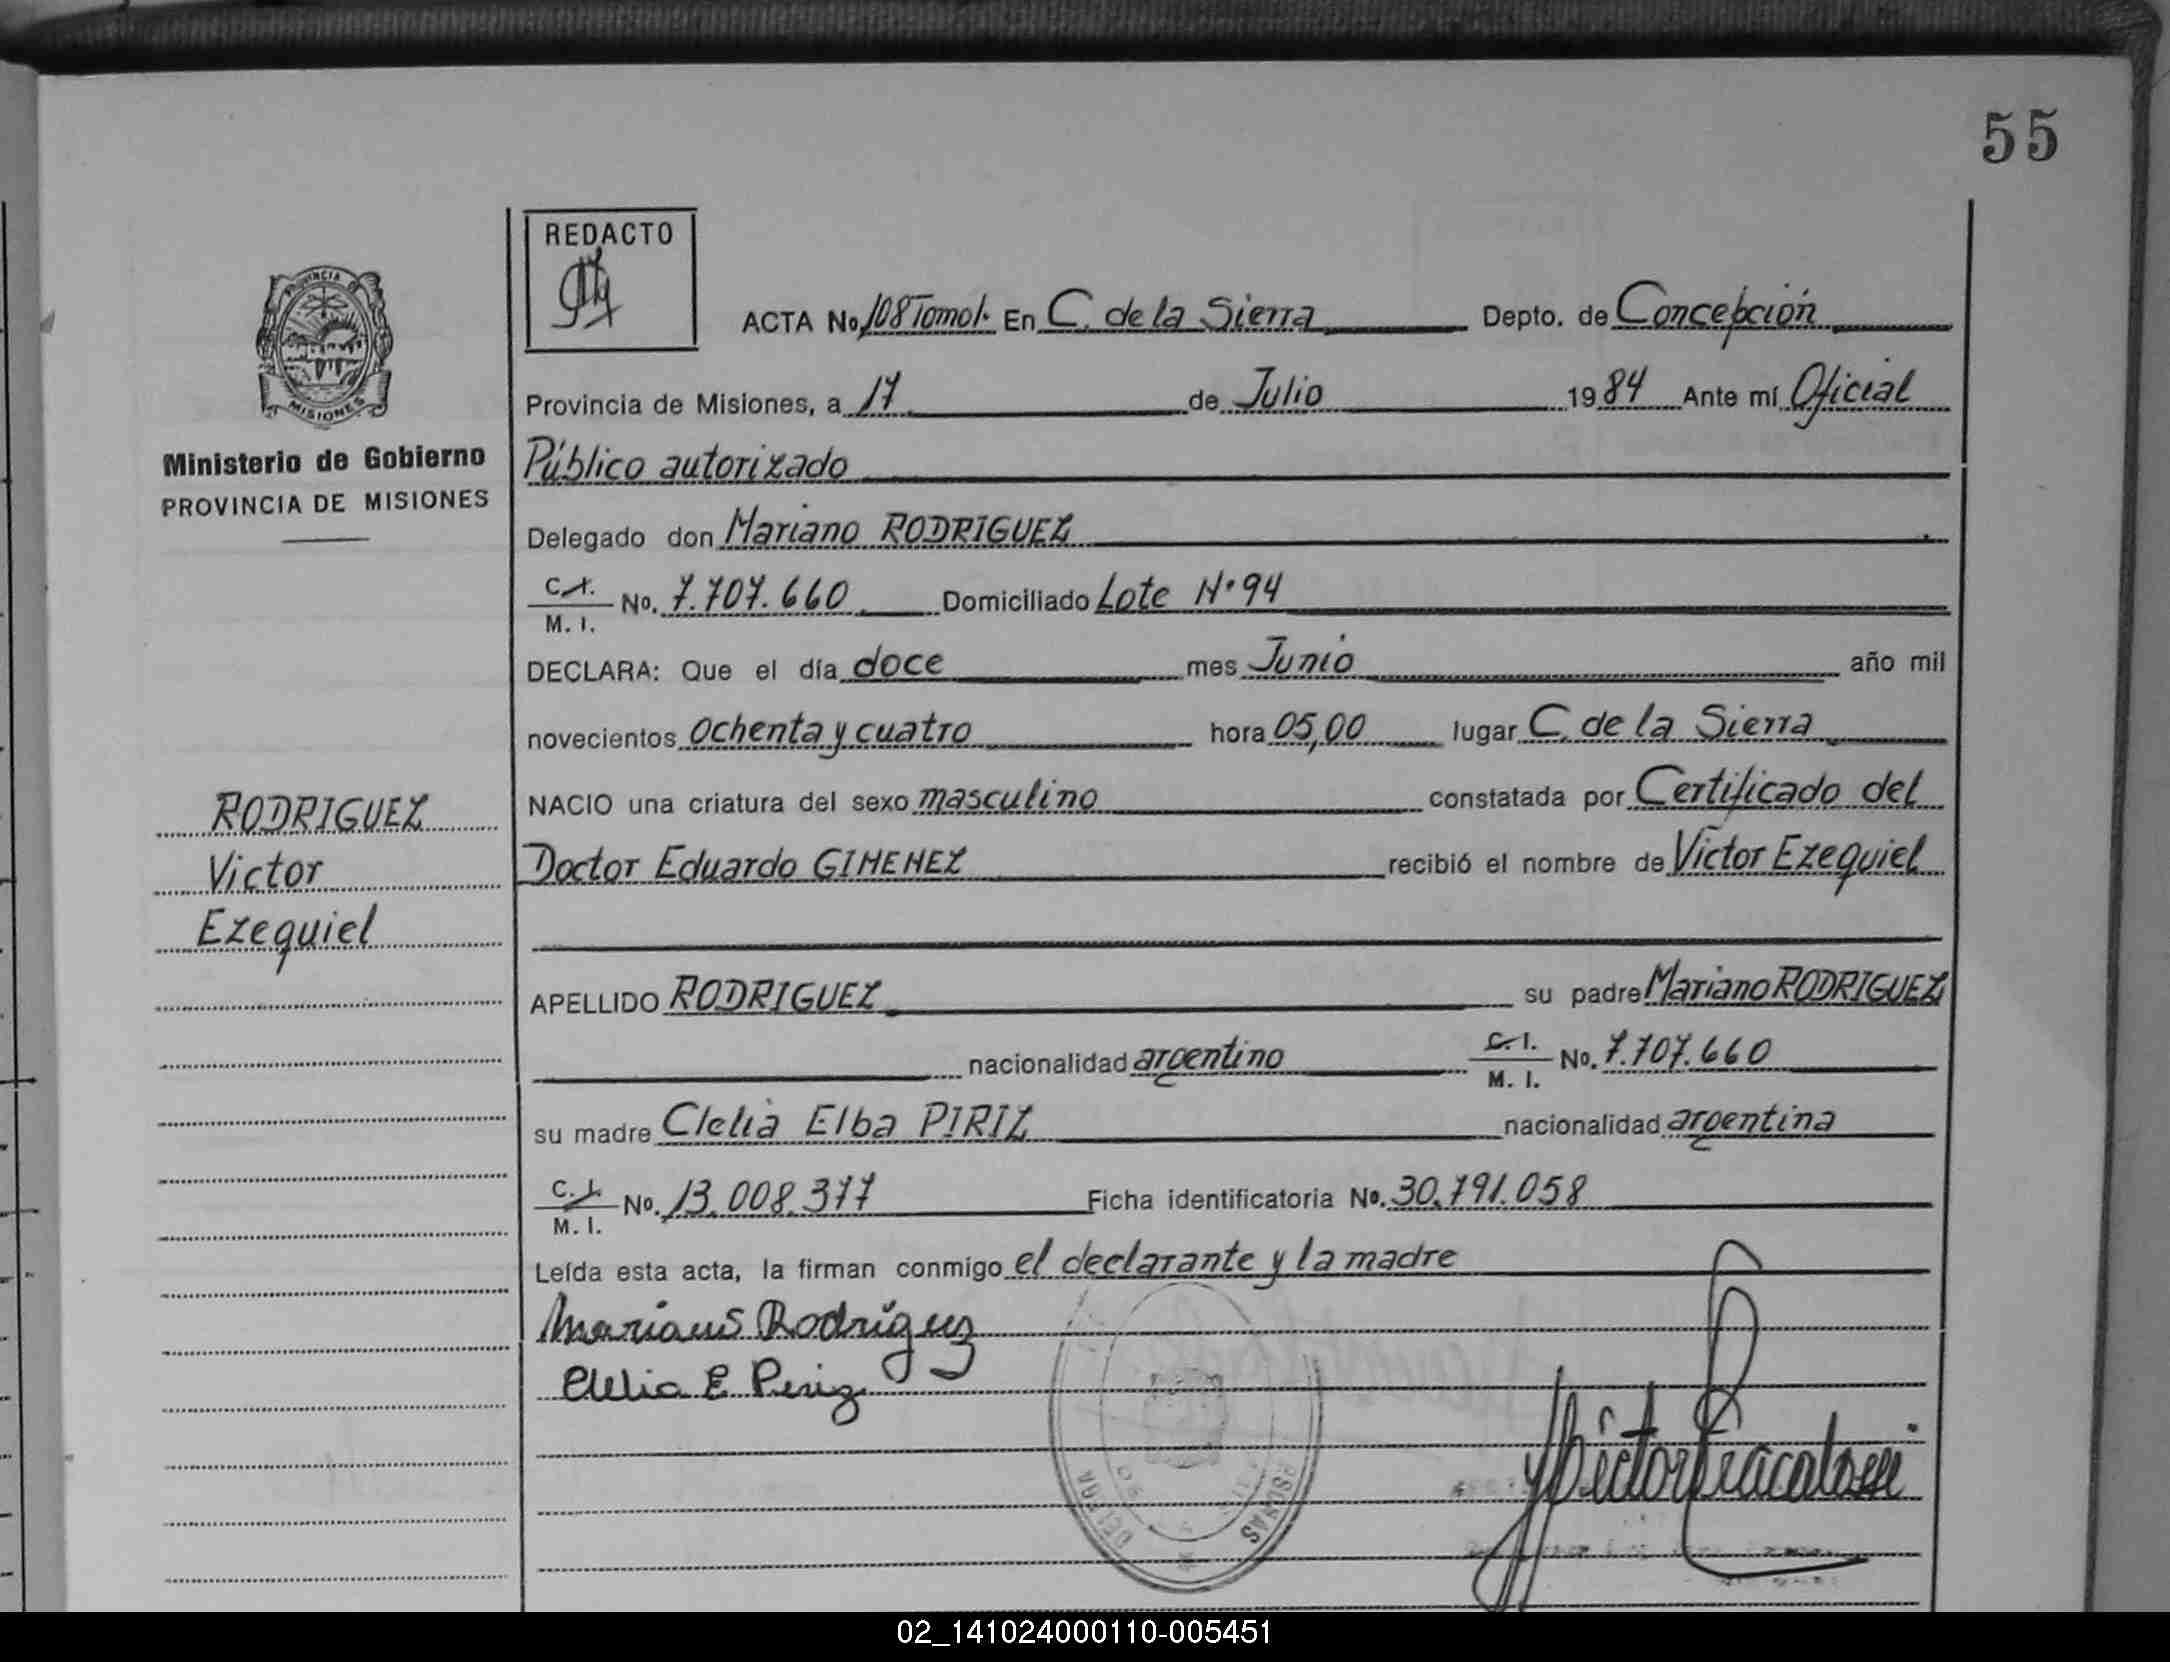 55
REDACTO
PROVINCIA
MISIONES
ACTA No. 108 Tomo I. En C. de la Sierra Depto. de Concepción
Provincia de Misiones, a 17 de Julio 1984 Ante mí Oficial
Ministerio de Gobierno
PROVINCIA DE MISIONES
Público autorizado
Delegado don Mariano RODRIGUEZ
C. I. M. I. No. 7.707.660 Domiciliado Lote N° 94
DECLARA: Que el día doce mes Junio año mil
novecientos ochenta y cuatro hora 05,00 lugar C. de la Sierra
NACIO una criatura del sexo masculino constatada por Certificado del
Doctor Eduardo GIMENEZ recibió el nombre de Víctor Ezequiel
RODRIGUEZ
Victor
Ezequiel
APELLIDO RODRIGUEZ su padre Mariano RODRIGUEZ
nacionalidad argentino C. I. M. I. No. 7.707.660
su madre Clelia Elba PIRIZ nacionalidad argentina
C. I. M. I. No. 13.008.377 Ficha identificatoria No. 30.791.058
Leída esta acta, la firman conmigo el declarante y la madre
Mariano Rodriguez
Clelia E Periz
02_141024000110-005451